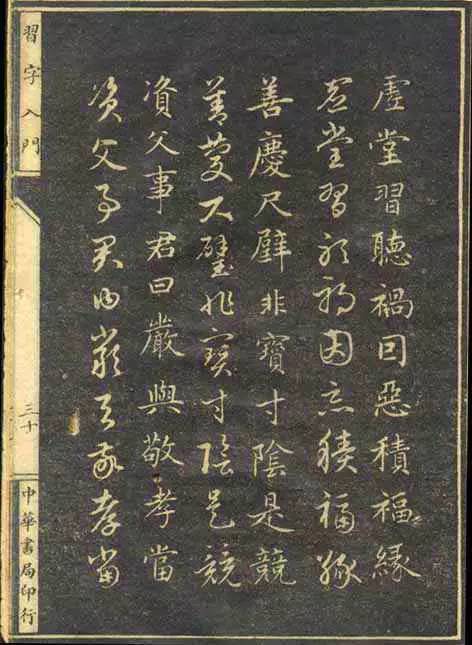 虛堂習聽禍因惡積福緣
虛堂習聽禍因惡積福緣
善慶尺璧非寶寸陰是競
善慶尺璧非寶寸陰是競
資父事君曰嚴與敬孝當
資父事君曰嚴與敬孝當
習字入門
三十
中華書局印行